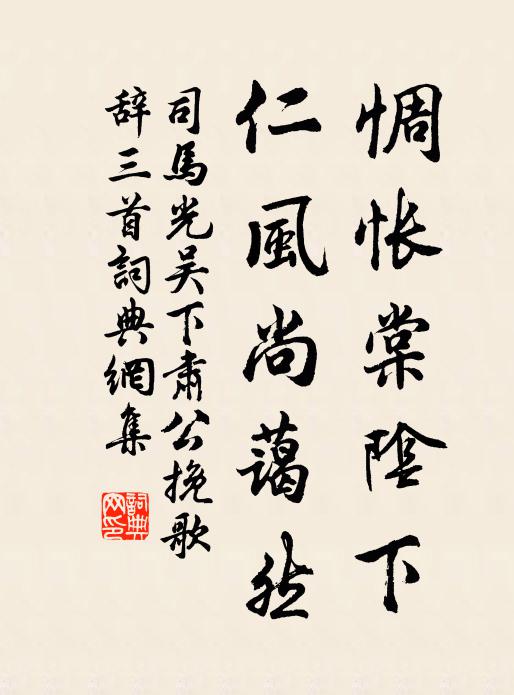 惆悵棠陰下
仁風尚藹然
司馬光吴下肅公挽歌
辞三首詞典網集
詞典网印